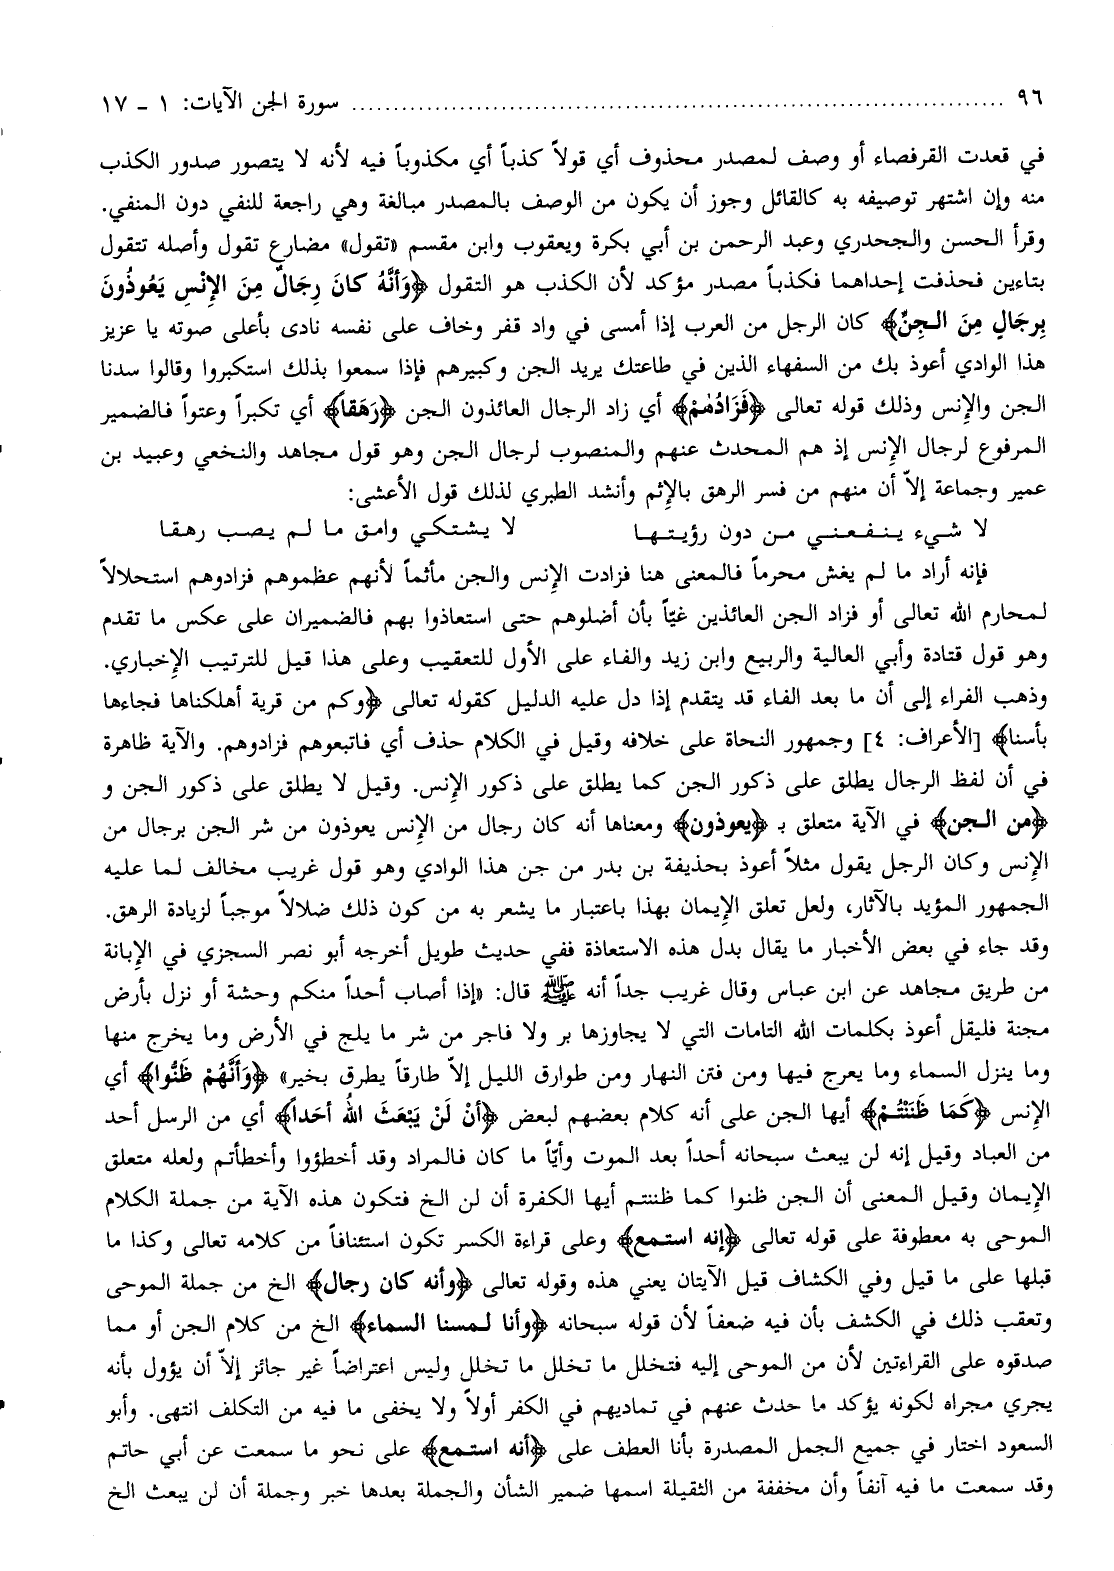 ٩٦ ........ سورة الجن الآيات: ١ - ١٧
في قعدت القرفصاء أو وصف لمصدر محذوف أي قولاً كذباً أي مكذوباً فيه لأنه لا يتصور صدور الكذب
منه وإن اشتهر توصيفه به كالقائل وجوز أن يكون من الوصف بالمصدر مبالغة وهي راجعة للنفي دون المنفي.
وقرأ الحسن والجحدري وعبد الرحمن بن أبي بكرة ويعقوب وابن مقسم «تقول» مضارع تقول وأصله تتقول
بتاءين فحذفت إحداهما فكذباً مصدر مؤكد لأن الكذب هو التقول ﴿وَأَنَّهُ كانَ رِجَالٌ مِنَ الإِنْسِ يَعُوذُونَ
بِرِجَالٍ مِنَ الـجِنِّ﴾ كان الرجل من العرب إذا أمسى في واد قفر وخاف على نفسه نادى بأعلى صوته يا عزيز
هذا الوادي أعوذ بك من السفهاء الذين في طاعتك يريد الجن وكبيرهم فإذا سمعوا بذلك استكبروا وقالوا سدنا
الجن والإنس وذلك قوله تعالى ﴿فَزَادُهْمْ﴾ أي زاد الرجال العائذون الجن ﴿رَهَقاً﴾ أي تكبراً وعتواً فالضمير
المرفوع لرجال الإنس إذ هم المحدث عنهم والمنصوب لرجال الجن وهو قول مجاهد والنخعي وعبيد بن
عمير وجماعة إلاّ أن منهم من فسر الرهق بالإثم وأنشد الطبري لذلك قول الأعشى:
لا شيء ينفعني من دون رؤيتها لا يشتكي وامق ما لم يصب رهقا
فإنه أراد ما لم يغش محرماً فالمعنى هنا فزادت الإنس والجن مأثماً لأنهم عظموهم فزادوهم استحلالاً
لمحارم الله تعالى أو فزاد الجن العائذين غيّاً بأن أضلوهم حتى استعاذوا بهم فالضميران على عكس ما تقدم
وهو قول قتادة وأبي العالية والربيع وابن زيد والفاء على الأول للتعقيب وعلى هذا قيل للترتيب الإخباري.
وذهب الفراء إلى أن ما بعد الفاء قد يتقدم إذا دل عليه الدليل كقوله تعالى ﴿وكم من قرية أهلكناها فجاءها
بأسنا﴾ [الأعراف: ٤] وجمهور النحاة على خلافه وقيل في الكلام حذف أي فاتبعوهم فزادوهم. والآية ظاهرة
في أن لفظ الرجال يطلق على ذكور الجن كما يطلق على ذكور الإنس. وقيل لا يطلق على ذكور الجن و
﴿من الـجن﴾ في الآية متعلق بـ ﴿يعوذون﴾ ومعناها أنه كان رجال من الإنس يعوذون من شر الجن برجال من
الإنس وكان الرجل يقول مثلاً أعوذ بحذيفة بن بدر من جن هذا الوادي وهو قول غريب مخالف لما عليه
الجمهور المؤيد بالآثار، ولعل تعلق الإيمان بهذا باعتبار ما يشعر به من كون ذلك ضلالاً موجباً لزيادة الرهق.
وقد جاء في بعض الأخبار ما يقال بدل هذه الاستعاذة ففي حديث طويل أخرجه أبو نصر السجزي في الإبانة
من طريق مجاهد عن ابن عباس وقال غريب جداً أنه ﷺ قال: «إذا أصاب أحداً منكم وحشة أو نزل بأرض
مجنة فليقل أعوذ بكلمات الله التامات التي لا يجاوزها بر ولا فاجر من شر ما يلج في الأرض وما يخرج منها
وما ينزل السماء وما يعرج فيها ومن فتن النهار ومن طوارق الليل إلاّ طارقاً يطرق بخير» ﴿وَأَنَّهُمْ ظَنُّوا﴾ أي
الإنس ﴿كَمَا ظَنَنْتُـمْ﴾ أيها الجن على أنه كلام بعضهم لبعض ﴿أنْ لَنْ يَبْعَثَ اللهُ أحَداً﴾ أي من الرسل أحد
من العباد وقيل إنه لن يبعث سبحانه أحداً بعد الموت وأيّاً ما كان فالمراد وقد أخطؤوا وأخطأتم ولعله متعلق
الإيمان وقيل المعنى أن الجن ظنوا كما ظننتم أيها الكفرة أن لن الخ فتكون هذه الآية من جملة الكلام
الموحى به معطوفة على قوله تعالى ﴿إنه استمع﴾ وعلى قراءة الكسر تكون استئنافاً من كلامه تعالى وكذا ما
قبلها على ما قيل وفي الكشاف قيل الآيتان يعني هذه وقوله تعالى ﴿وأنه كان رجال﴾ الخ من جملة الموحى
وتعقب ذلك في الكشف بأن فيه ضعفاً لأن قوله سبحانه ﴿وأنا لـمسنا السماء﴾ الخ من كلام الجن أو مما
صدقوه على القراءتين لأن من الموحى إليه فتخلل ما تخلل ما تخلل وليس اعتراضاً غير جائز إلاّ أن يؤول بأنه
يجري مجراه لكونه يؤكد ما حدث عنهم في تماديهم في الكفر أولاً ولا يخفى ما فيه من التكلف انتهى. وأبو
السعود اختار في جميع الجمل المصدرة بأنا العطف على ﴿أنه استمع﴾ على نحو ما سمعت عن أبي حاتم
وقد سمعت ما فيه آنفاً وأن مخففة من الثقيلة اسمها ضمير الشأن والجملة بعدها خبر وجملة أن لن يبعث الخ